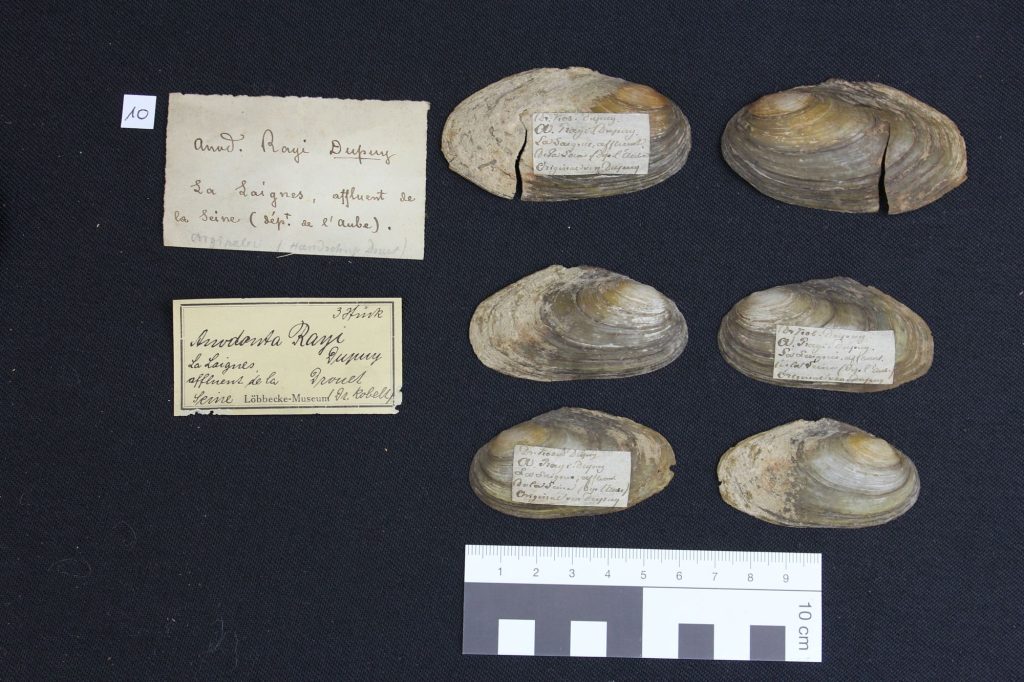 10
Anod. Rayi Dupuy
La Laignes, affluent de
la Seine (dépt de l'Aube).
Originale! (Handschrift Drouet)
3 Stück
Anodonta Rayi
Dupuy
La Laignes,
affluent de la Drouet
Seine Löbbecke-Museum (Dr. Kobelt)
Dupuy.
A. Rayi Dupuy.
La Laignes, affluent
de la Seine
Original von Dupuy
A. Rayi Dupuy.
La Laignes, affluent
de la Seine
Original von Dupuy
Dupuy
A. Rayi Dupuy
La Laignes, affluent
de la Seine
Original von Dupuy
1 2 3 4 5 6 7 8 9
10 cm